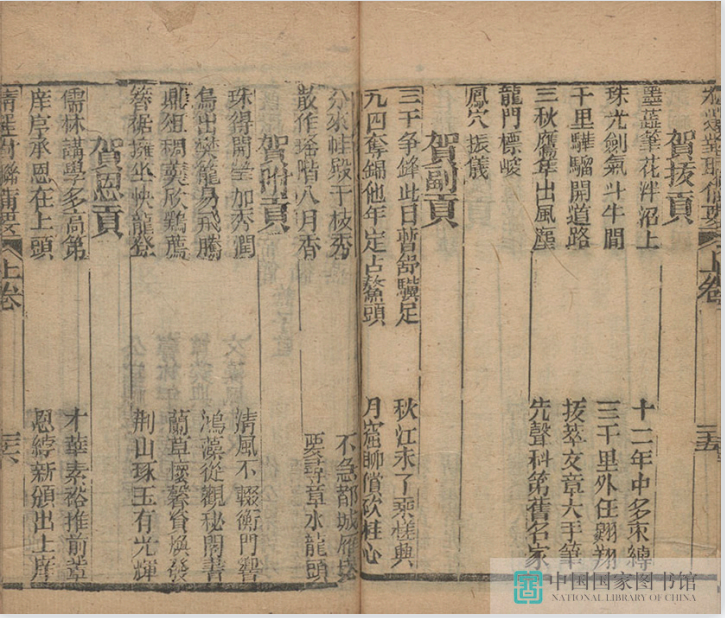 上卷
三五
賀拔貢
墨蘸筆花泮沼上
十二年中多束縛
珠光劍氣斗牛間
三千里外任翱翔
千里驊騮開道路
拔萃文章大手筆
三秋鷹隼出風塵
先聲科第舊名家
龍門標峻
鳳穴振儀
賀副貢
三千爭鋒此日暫舒驥足
秋江未了乘槎典
九四奪錦他年定占鰲頭
月窟聊償砍桂心
分來桂殿千枝秀
不急都城雁塔
散作瑤階八月香
要尋章水龍頭
賀附貢
珠得開瑩加秀潤
清風不輟衡門業
鳥出樊籠易飛騰
鴻藻從觀秘閣書
鼎俎稠羹欣鶚薦
蘭草懷馨資煥發
簪裾擁坐快龍登
荆山琢玉有光輝
賀恩貢
儒林講學多高第
才華素裕推前輩
庠序承恩在上頭
恩綍新頒出上庠
精選對聯備要
上卷
三六
中国国家图书馆
NATIONAL LIBRARY OF CHINA